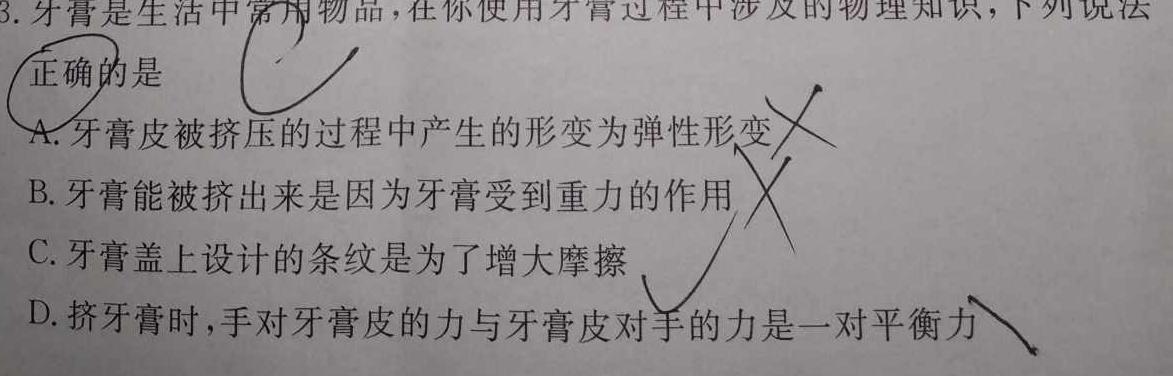 3. 牙膏是生活中常用物品，在你使用牙膏过程中涉及的物理知识，下列说法
正确的是
A. 牙膏皮被挤压的过程中产生的形变为弹性形变
B. 牙膏能被挤出来是因为牙膏受到重力的作用
C. 牙膏盖上设计的条纹是为了增大摩擦
D. 挤牙膏时，手对牙膏皮的力与牙膏皮对手的力是一对平衡力